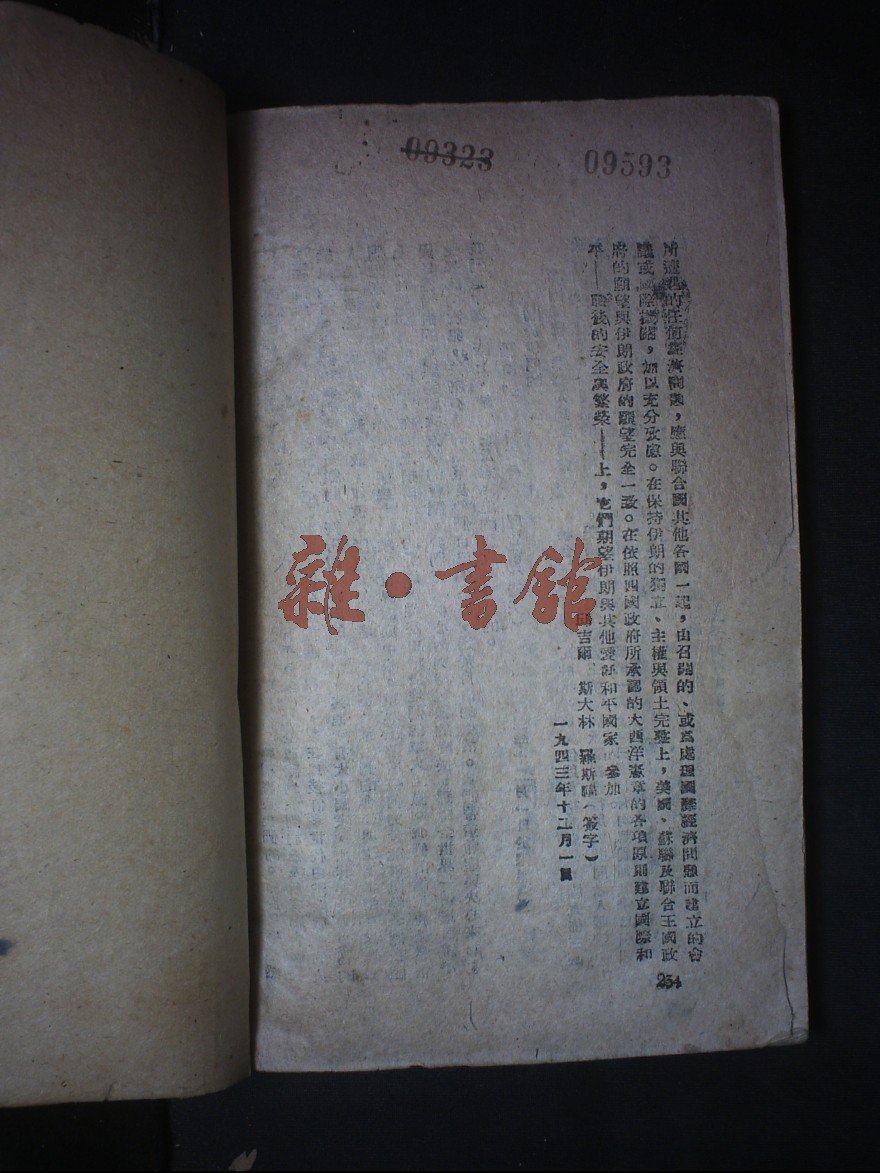 09323
09593
所遭遇的任何經濟問題,應與聯合國其他各國一起,由召開的、或爲處理國際經濟問題而建立的會
議或國際機關,加以充分攷慮。在保持伊朗的獨立、主權與領土完整上,美國、蘇聯及聯合王國政
府的願望與伊朗政府的願望完全一致。在依照四國政府所承認的大西洋憲章的各項原則建立國際和
平——戰後的安全與繁榮——上,它們期望伊朗與其他愛好和平國家 參加。
邱吉爾 斯大林 羅斯福(簽字)
一九四三年十二月一日
254
雜·書館